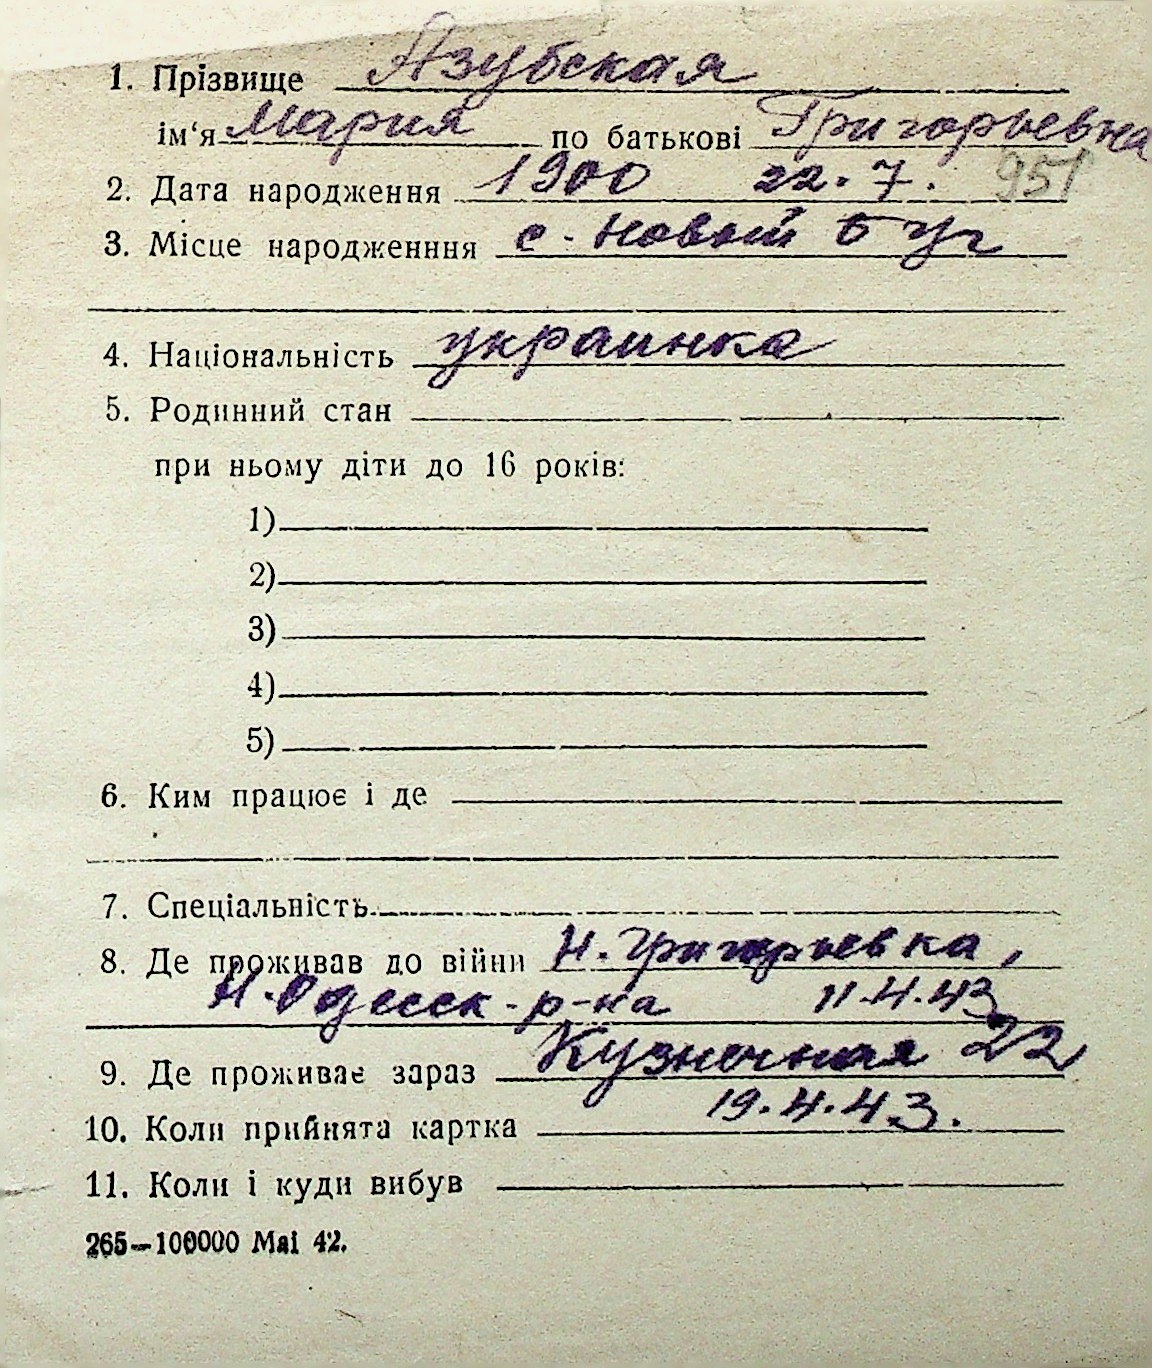 1. Прізвище Язубская
ім'я Мария по батькові Григорьевна
2. Дата народження 1900 22.7. 951
3. Місце народженння с. Новый Буг
4. Національність украинка
5. Родинний стан
при ньому діти до 16 років:
1)
2)
3)
4)
5)
6. Ким працює і де
7. Спеціальність
8. Де проживав до війни Н. Григорьевка,
Н. Одесск. р-на 11.4.43
9. Де проживає зараз Кузнечная 22
10. Коли прийнята картка 19.4.43.
11. Коли і куди вибув
265—100000 Mai 42.